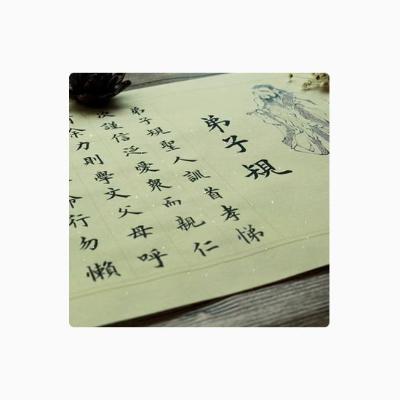 弟子規
弟子規聖人訓首孝悌
次謹信泛愛眾而親仁
有余力則學文父母呼
命行勿懶